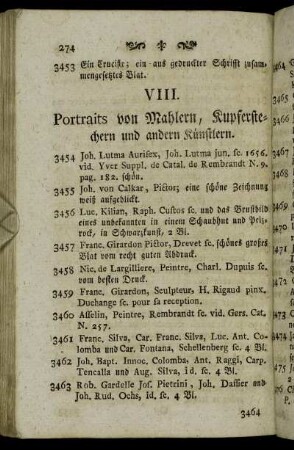 274
3453 Ein Crucifix; ein aus gedruckter Schrifft zusam-
mengesetztes Blat.
VIII.
Portraits von Mahlern, Kupferste-
chern und andern Künstlern.
3454 Joh. Lutma Aurifex, Joh. Lutma jun. fc. 1656.
vid. Yver Suppl. de Catal. de Rembrandt N. 9.
pag. 182. schön.
3455 Joh. von Calkar, Pictor; eine schöne Zeichnung
weiß aufgedückt.
3456 Luc. Kilian, Raph. Custos fc. und das Brustbild
eines unbekannten in einem Schaubhut und Pelz-
rock, in Schwarzkunst, 2 Bl.
3457 Franc. Girardon Pictor, Drevet fc. schönes großes
Blat vom recht guten Abdruck.
3458 Nic. de Largilliere, Peintre, Charl. Dupuis fc.
vom besten Druck.
3459 Franc. Girardon, Sculpteur, H. Rigaud pinx.
Duchange fc. pour sa reception.
3460 Asselin, Peintre, Rembrandt fc. vid. Gers. Cat.
N. 257.
3461 Franc. Silva, Car. Franc. Silva, Luc. Ant. Co-
lomba und Car. Fontana, Schellenberg fc. 4 Bl.
3462 Joh. Bapt. Innoc. Colomba, Ant. Raggi, Carp.
Tencalla und Aug. Silva, id fc. 4 Bl.
3463 Rob. Gardelle Jof. Pietrini, Joh. Dassier und
Joh. Rud. Ochs, Id. fc. 4 Bl.
3464